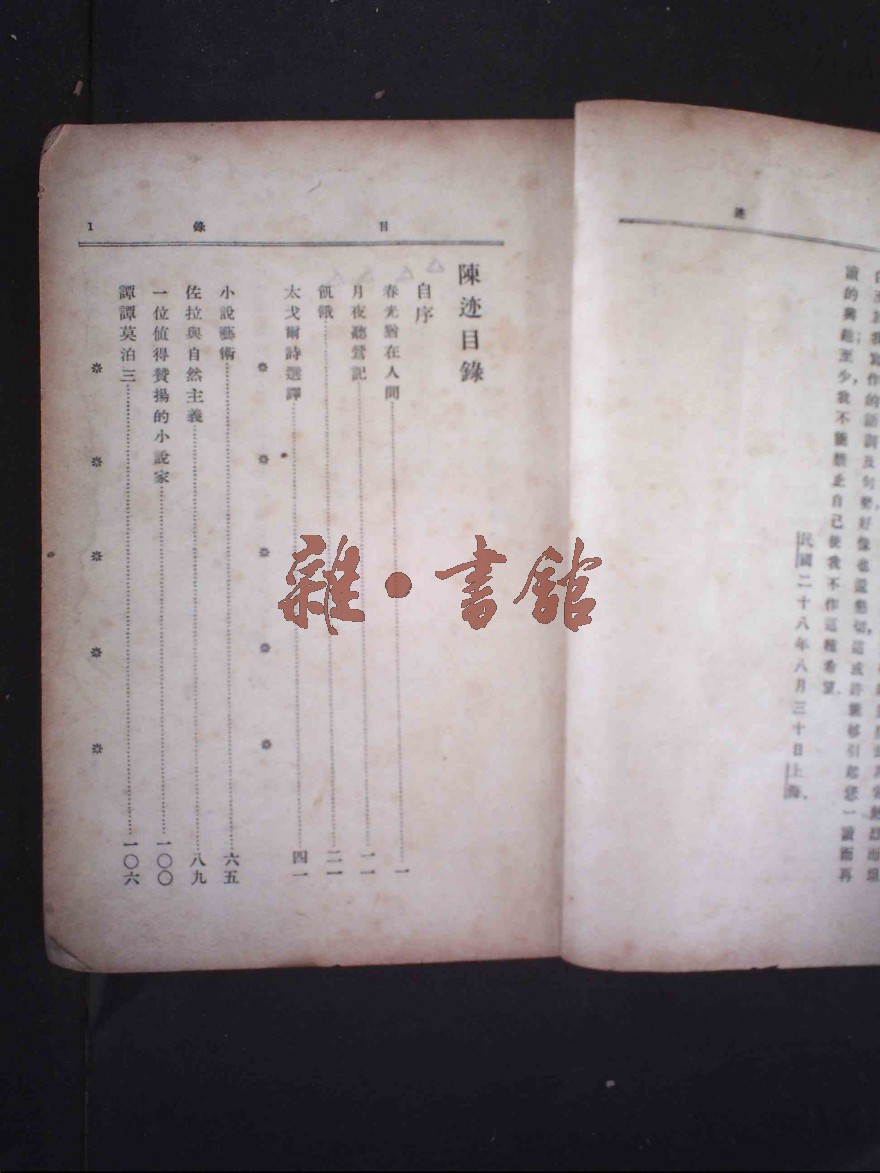 迹
讀的興趣至少我不能禁止自己使我不作這種希望
民國二十八年八月三十日上海。
目 錄 1
陳迹目錄
自序
春光猶在人間……一
月夜聽鶯記……一一
飢餓……二一
太戈爾詩選譯……四一
小說藝術……六五
佐拉與自然主義……八九
一位值得贊揚的小說家……一〇〇
譚譚莫泊三……一〇六
雜·書館